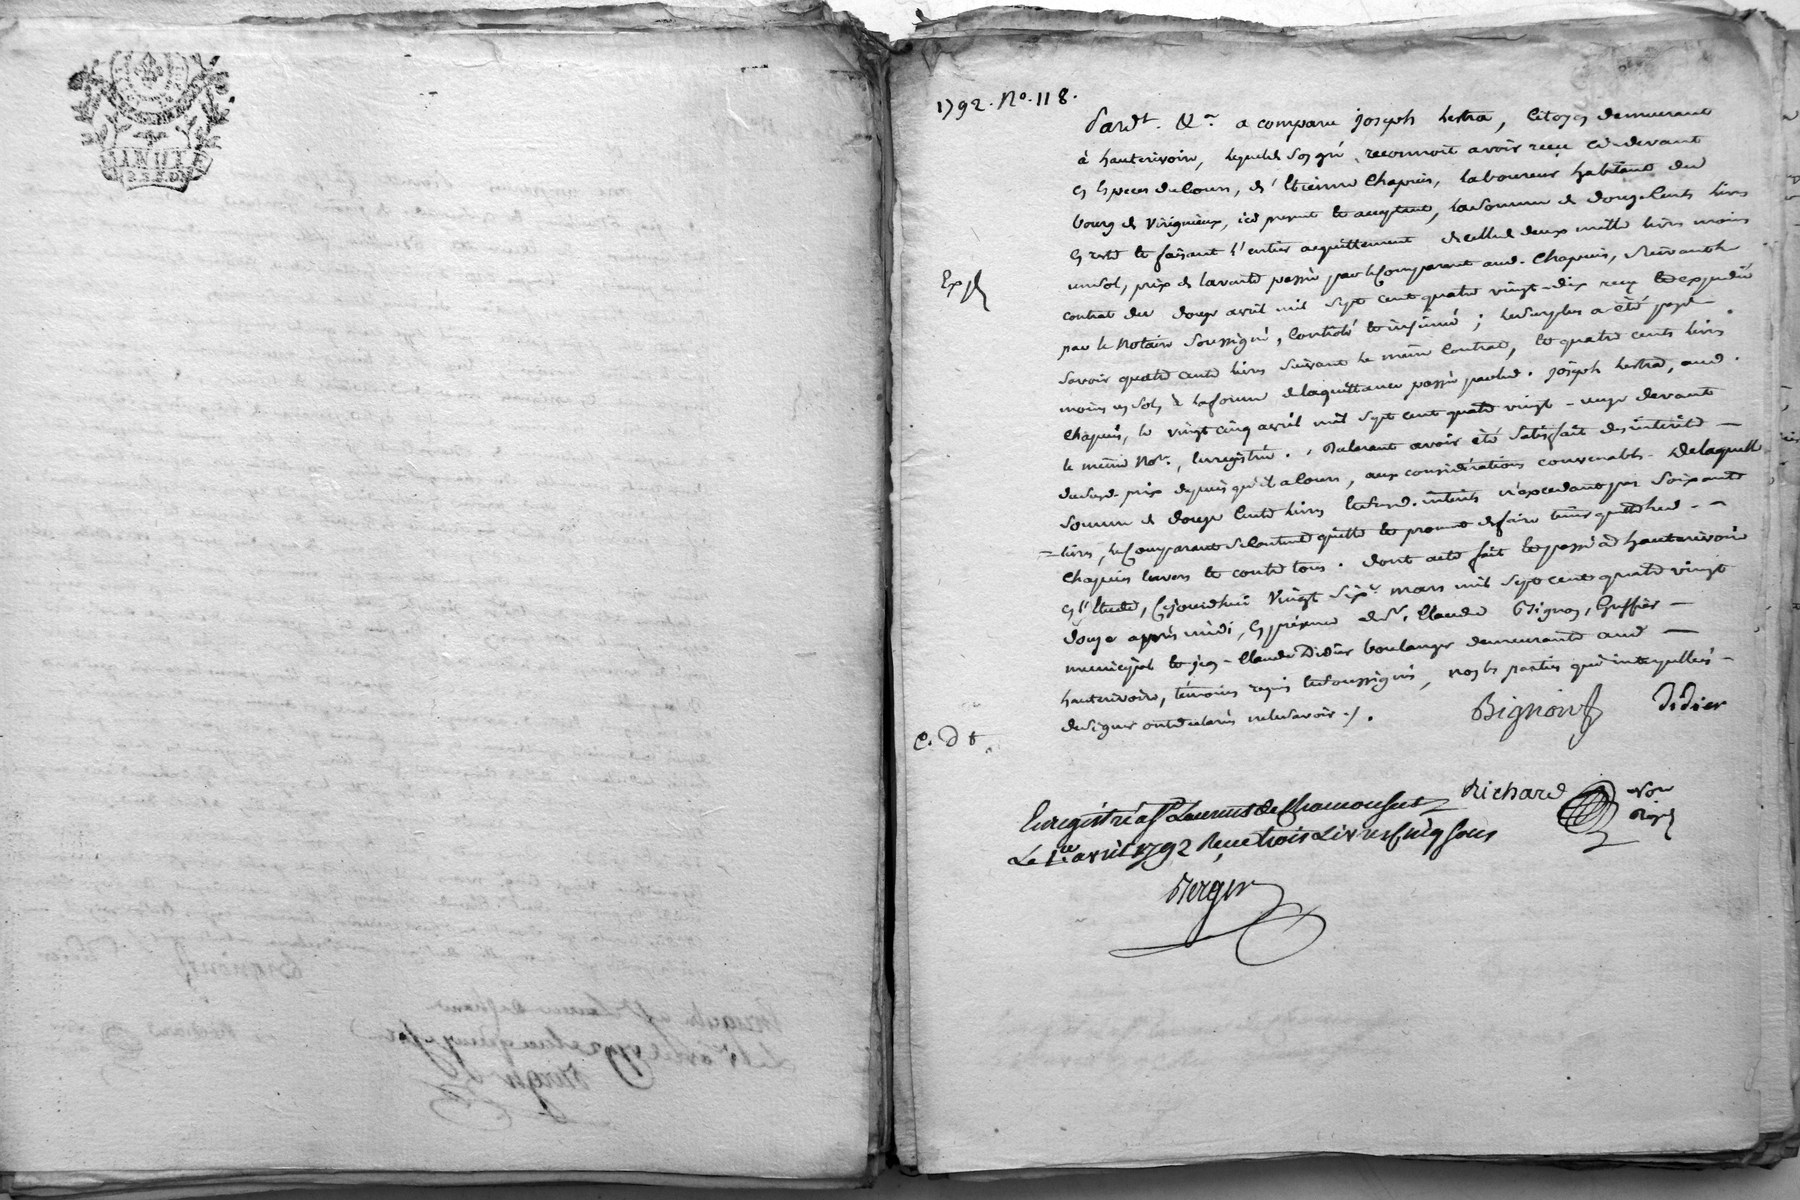 MINUTE
1792. No. 118.
Pardt. &a. a comparu joseph Lestra, Citoyen demeurant
à hauterivoire, lequel de son gré, reconnoit avoir reçu ci-devant
en Especes de Cours, d'Etienne Chapuis, laboureur habitant du
bourg de Virigneux, ici present et acceptant, la somme de douze Cents livres
en reste et faisant l'entier acquittement de celle de deux mille livres moins
un sol, prix de la vente passée par le Comparant aud. Chapuis, suivant le
contrat du douze avril mil sept cent quatre vingt-dix reçu et expedié
Exp
par le Notaire soussigné, Controlé et insinué; le surplus a été payé
savoir quatre cents livres suivant le même Contrat, et quatre cents livres
moins un sol, à la forme de la quittance passée par led. joseph Lestra, aud.
Chapuis, le vingt cinq avril mil sept cent quatre vingt-onze devant
le même Nore., Enregistrée., Declarant avoir été satisfait des intérêts
dud. prix depuis qu'il a Cours, aux considérations convenables. De laquelle
somme de douze Cents livres et desd. intérêts n'excedant pas soixante
livres, le Comparant se Contente quitte et promet de faire tenir quitte led.
Chapuis Envers et contre tous. Dont acte fait et passé à hauterivoire
en l'Etude, Cejourd'hui Vingt six mars mil sept cent quatre vingt
douze après midi, En présence de Sr. Claude Bignon, Greffier
municipal et jean-Claude Didier boulanger demeurants aud.
hauterivoire, témoins requis et soussignés, non les parties qui interpellées
de signer ont déclaré ne le savoir ./.
Bignon Didier
C. D t.
Richard Nore
Enregistré à St Laurent de Chamousset
Le 1er avril 1792 Reçu trois Livres Cinq sous
Berger